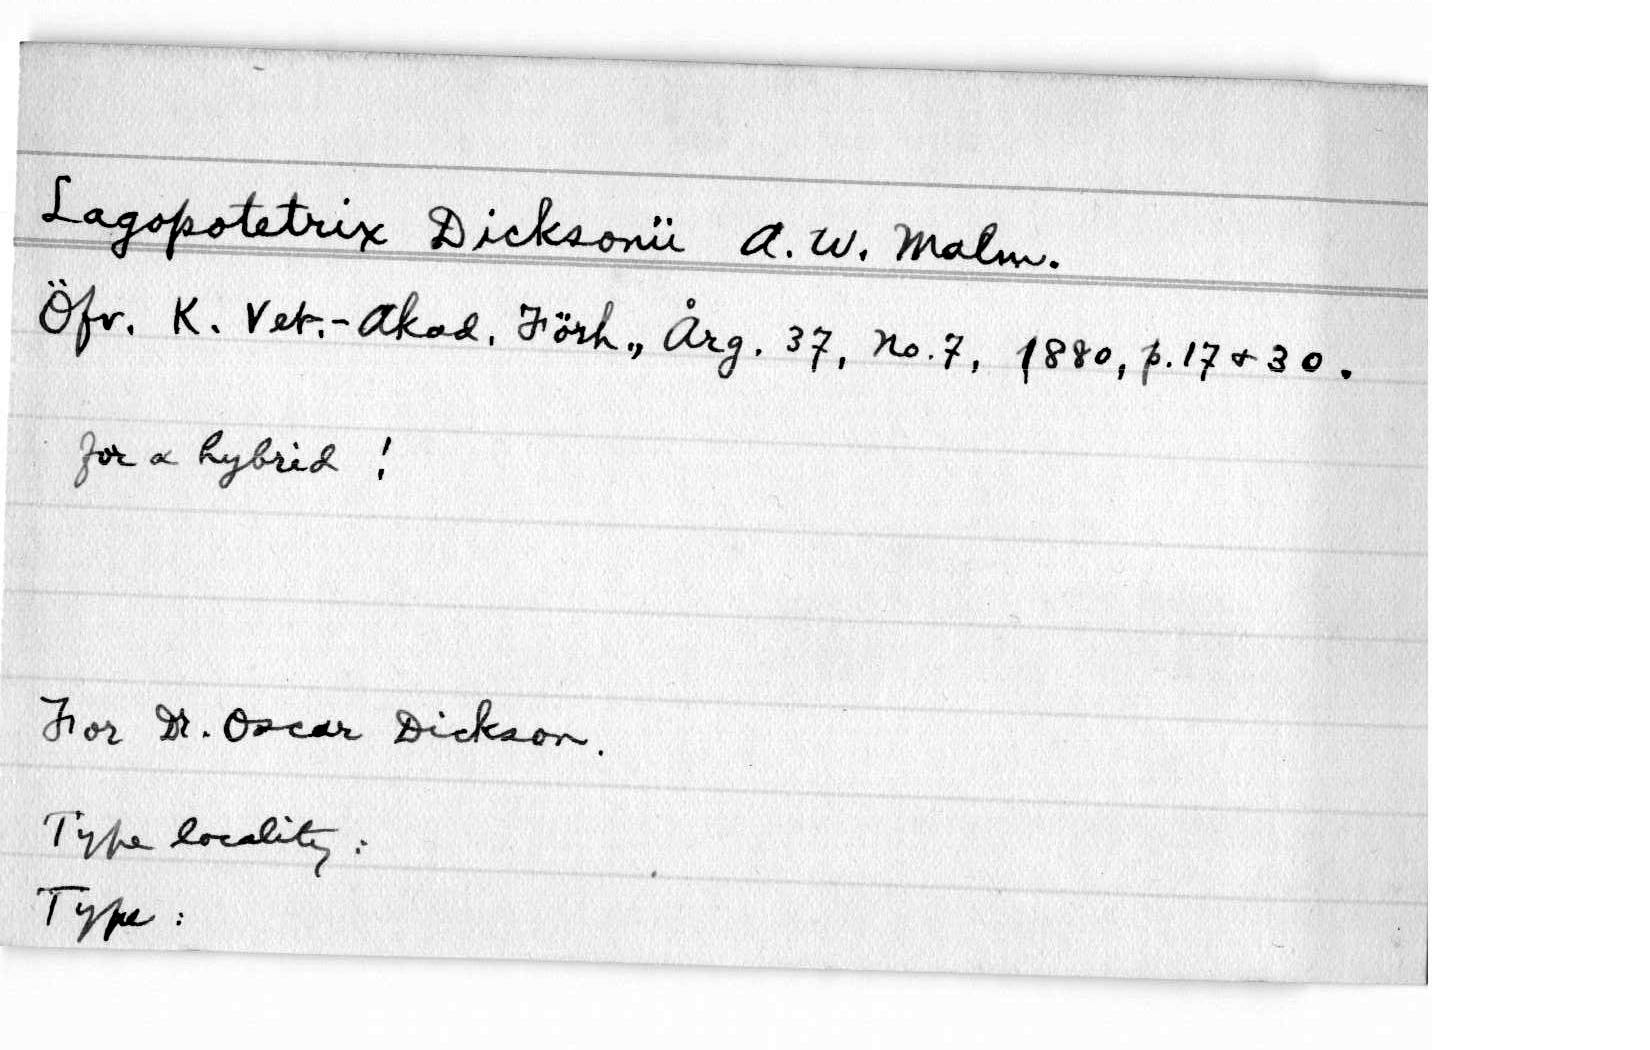 Lagopotetrix Dicksonii A. W. Malm.
Öfv. K. Vet.-Akad. Förh., Årg. 37, No. 7, 1880, p. 17 + 30.
for a hybrid !
For Dr. Oscar Dickson.
Type locality :
Type :